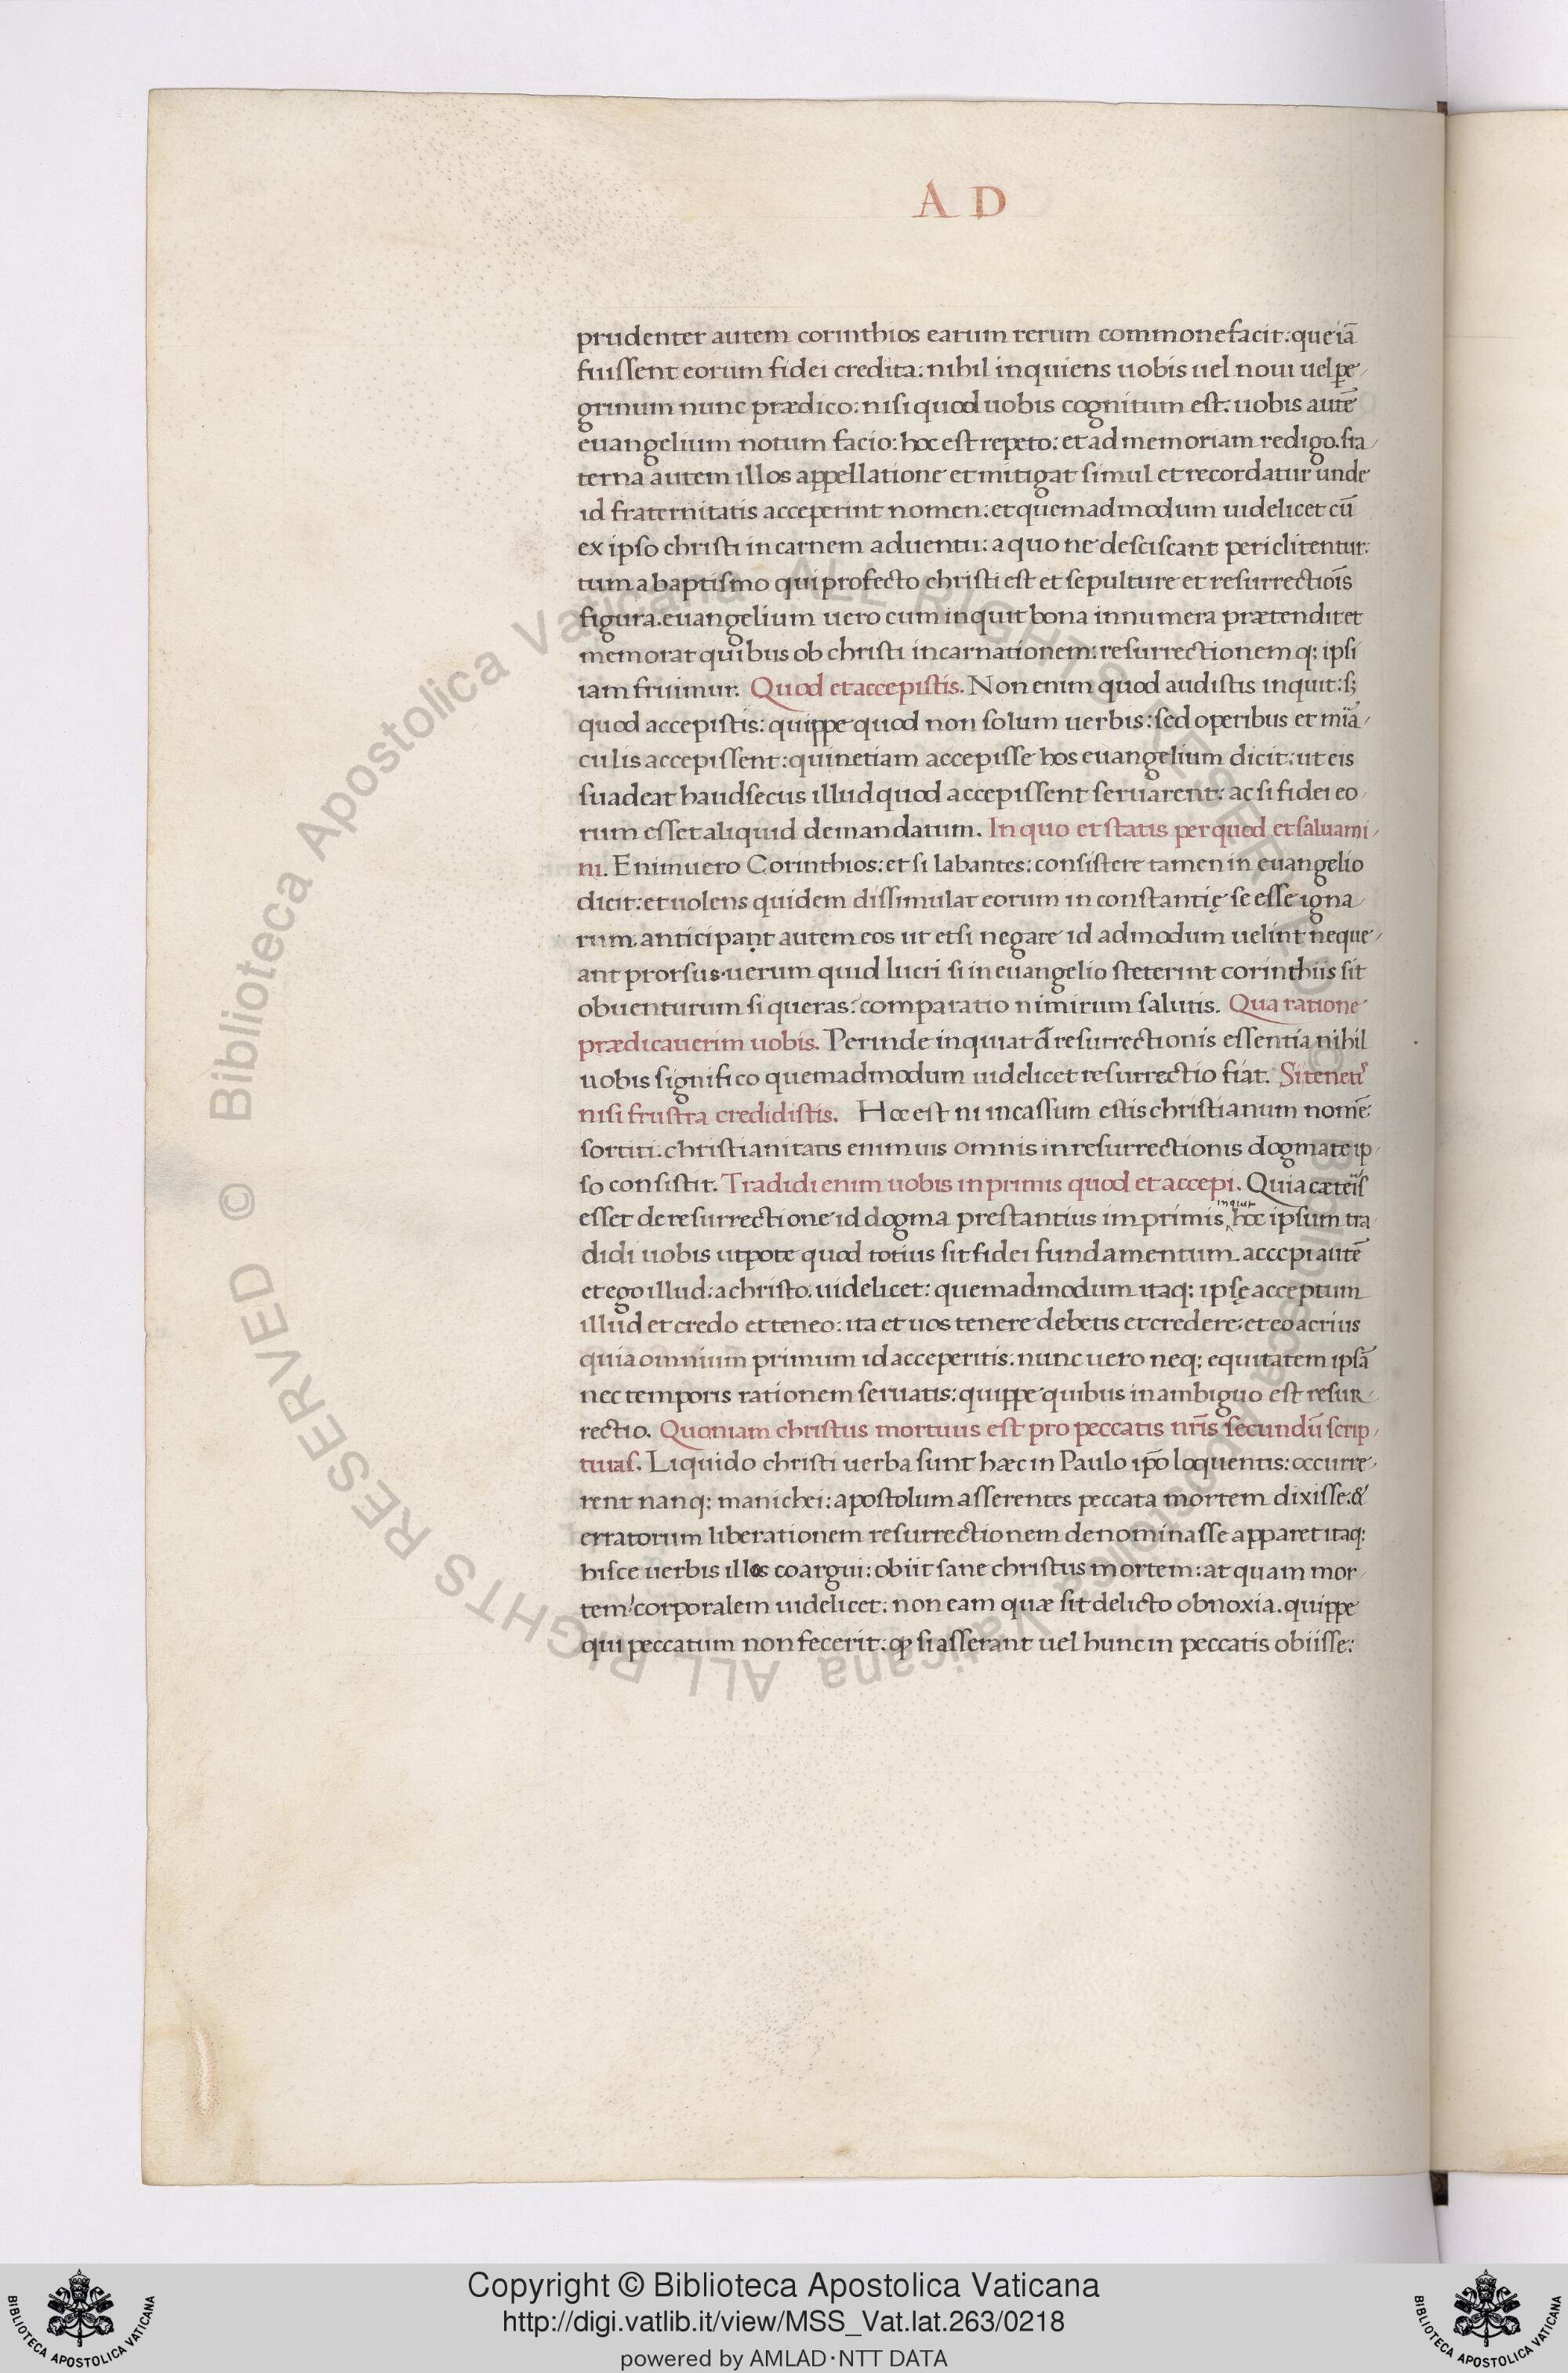 A D
prudenter autem corinthios earum rerum commonefacit: que iã
fuissent eorum fidei credita: nihil inquiens uobis uel noui uel pe
grinum nunc prædico: nisi quod uobis cognitum est: uobis autẽ
euangelium notum facio: hoc est repeto: et ad memoriam redigo. fra
terna autem illos appellatione et mitigat simul et recordatur unde
id fraternitatis acceperint nomen: et quemadmodum uidelicet cũ
ex ipso christi in carnem aduentu: a quo ne desciscant periclitentur:
tum a baptismo qui profecto christi est et sepulture et resurrectiõis
figura. euangelium uero cum inquit bona innumera prætendit et
memorat quibus ob christi incarnationem: resurrectionemq; ipsi
iam fruimur. Quod et accepistis. Non enim quod audistis inquit: s;
quod accepistis: quippe quod non solum uerbis: sed operibus et mira
culis accepissent: quinetiam accepisse hos euangelium dicit: ut eis
suadeat haud secus illud quod accepissent seruarent: ac si fidei eo
rum esset aliquid demandatum. In quo et statis per quod et saluami
ni. Enimuero Corinthios: et si labantes: consistere tamen in euangelio
dicit: et uolens quidem dissimulat eorum in constantię se esse igna
rum. anticipant autem eos ut etsi negare id admodum uelint neque
ant prorsus. uerum quid lucri si in euangelio steterint corinthiis sit
obuenturum si queras: comparatio nimirum salutis. Qua ratione
prædicauerim uobis. Perinde inquiat d̃ resurrectionis essentia nihil
uobis significo quemadmodum uidelicet resurrectio fiat. Si teneti'
nisi frustra credidistis. Hoc est ni incassum estis christianum nomẽ
sortiti. christianitatis enim uis omnis in resurrectionis dogmate ip
so consistit. Tradidi enim uobis in primis quod et accepi. Quia cæteris
inquit
esset de resurrectione id dogma prestantius imprimis hoc ipsum tra
didi uobis utpote quod totius sit fidei fundamentum. accepi autẽ
et ego illud: a christo. uidelicet: quemadmodum itaq; ipsę acceptum
illud et credo et teneo: ita et uos tenere debetis et credere: et eo acrius
quia omnium primum id acceperitis. nunc uero neq; equitatem ipsã
nec temporis rationem seruatis: quippe quibus in ambiguo est resur
rectio. Quoniam christus mortuus est pro peccatis nr̃is secundũ scrip
turas. Liquido christi uerba sunt hæc in Paulo ip̃o loquentis: occurre
rent nanq; manichei: apostolum asserentes peccata mortem dixisse: &
erratorum liberationem resurrectionem denominasse apparet itaq;
hisce uerbis illos coargui: obiit sane christus mortem: at quam mor
tem? corporalem uidelicet: non eam quæ sit delicto obnoxia. quippe
qui peccatum non fecerit: qp si asserant uel hunc in peccatis obiisse:
© Biblioteca Apostolica Vaticana ALL RIGHTS RESERVED
Copyright © Biblioteca Apostolica Vaticana
http://digi.vatlib.it/view/MSS_Vat.lat.263/0218
powered by AMLAD·NTT DATA
BIBLIOTECA APOSTOLICA VATICANA
BIBLIOTECA APOSTOLICA VATICANA